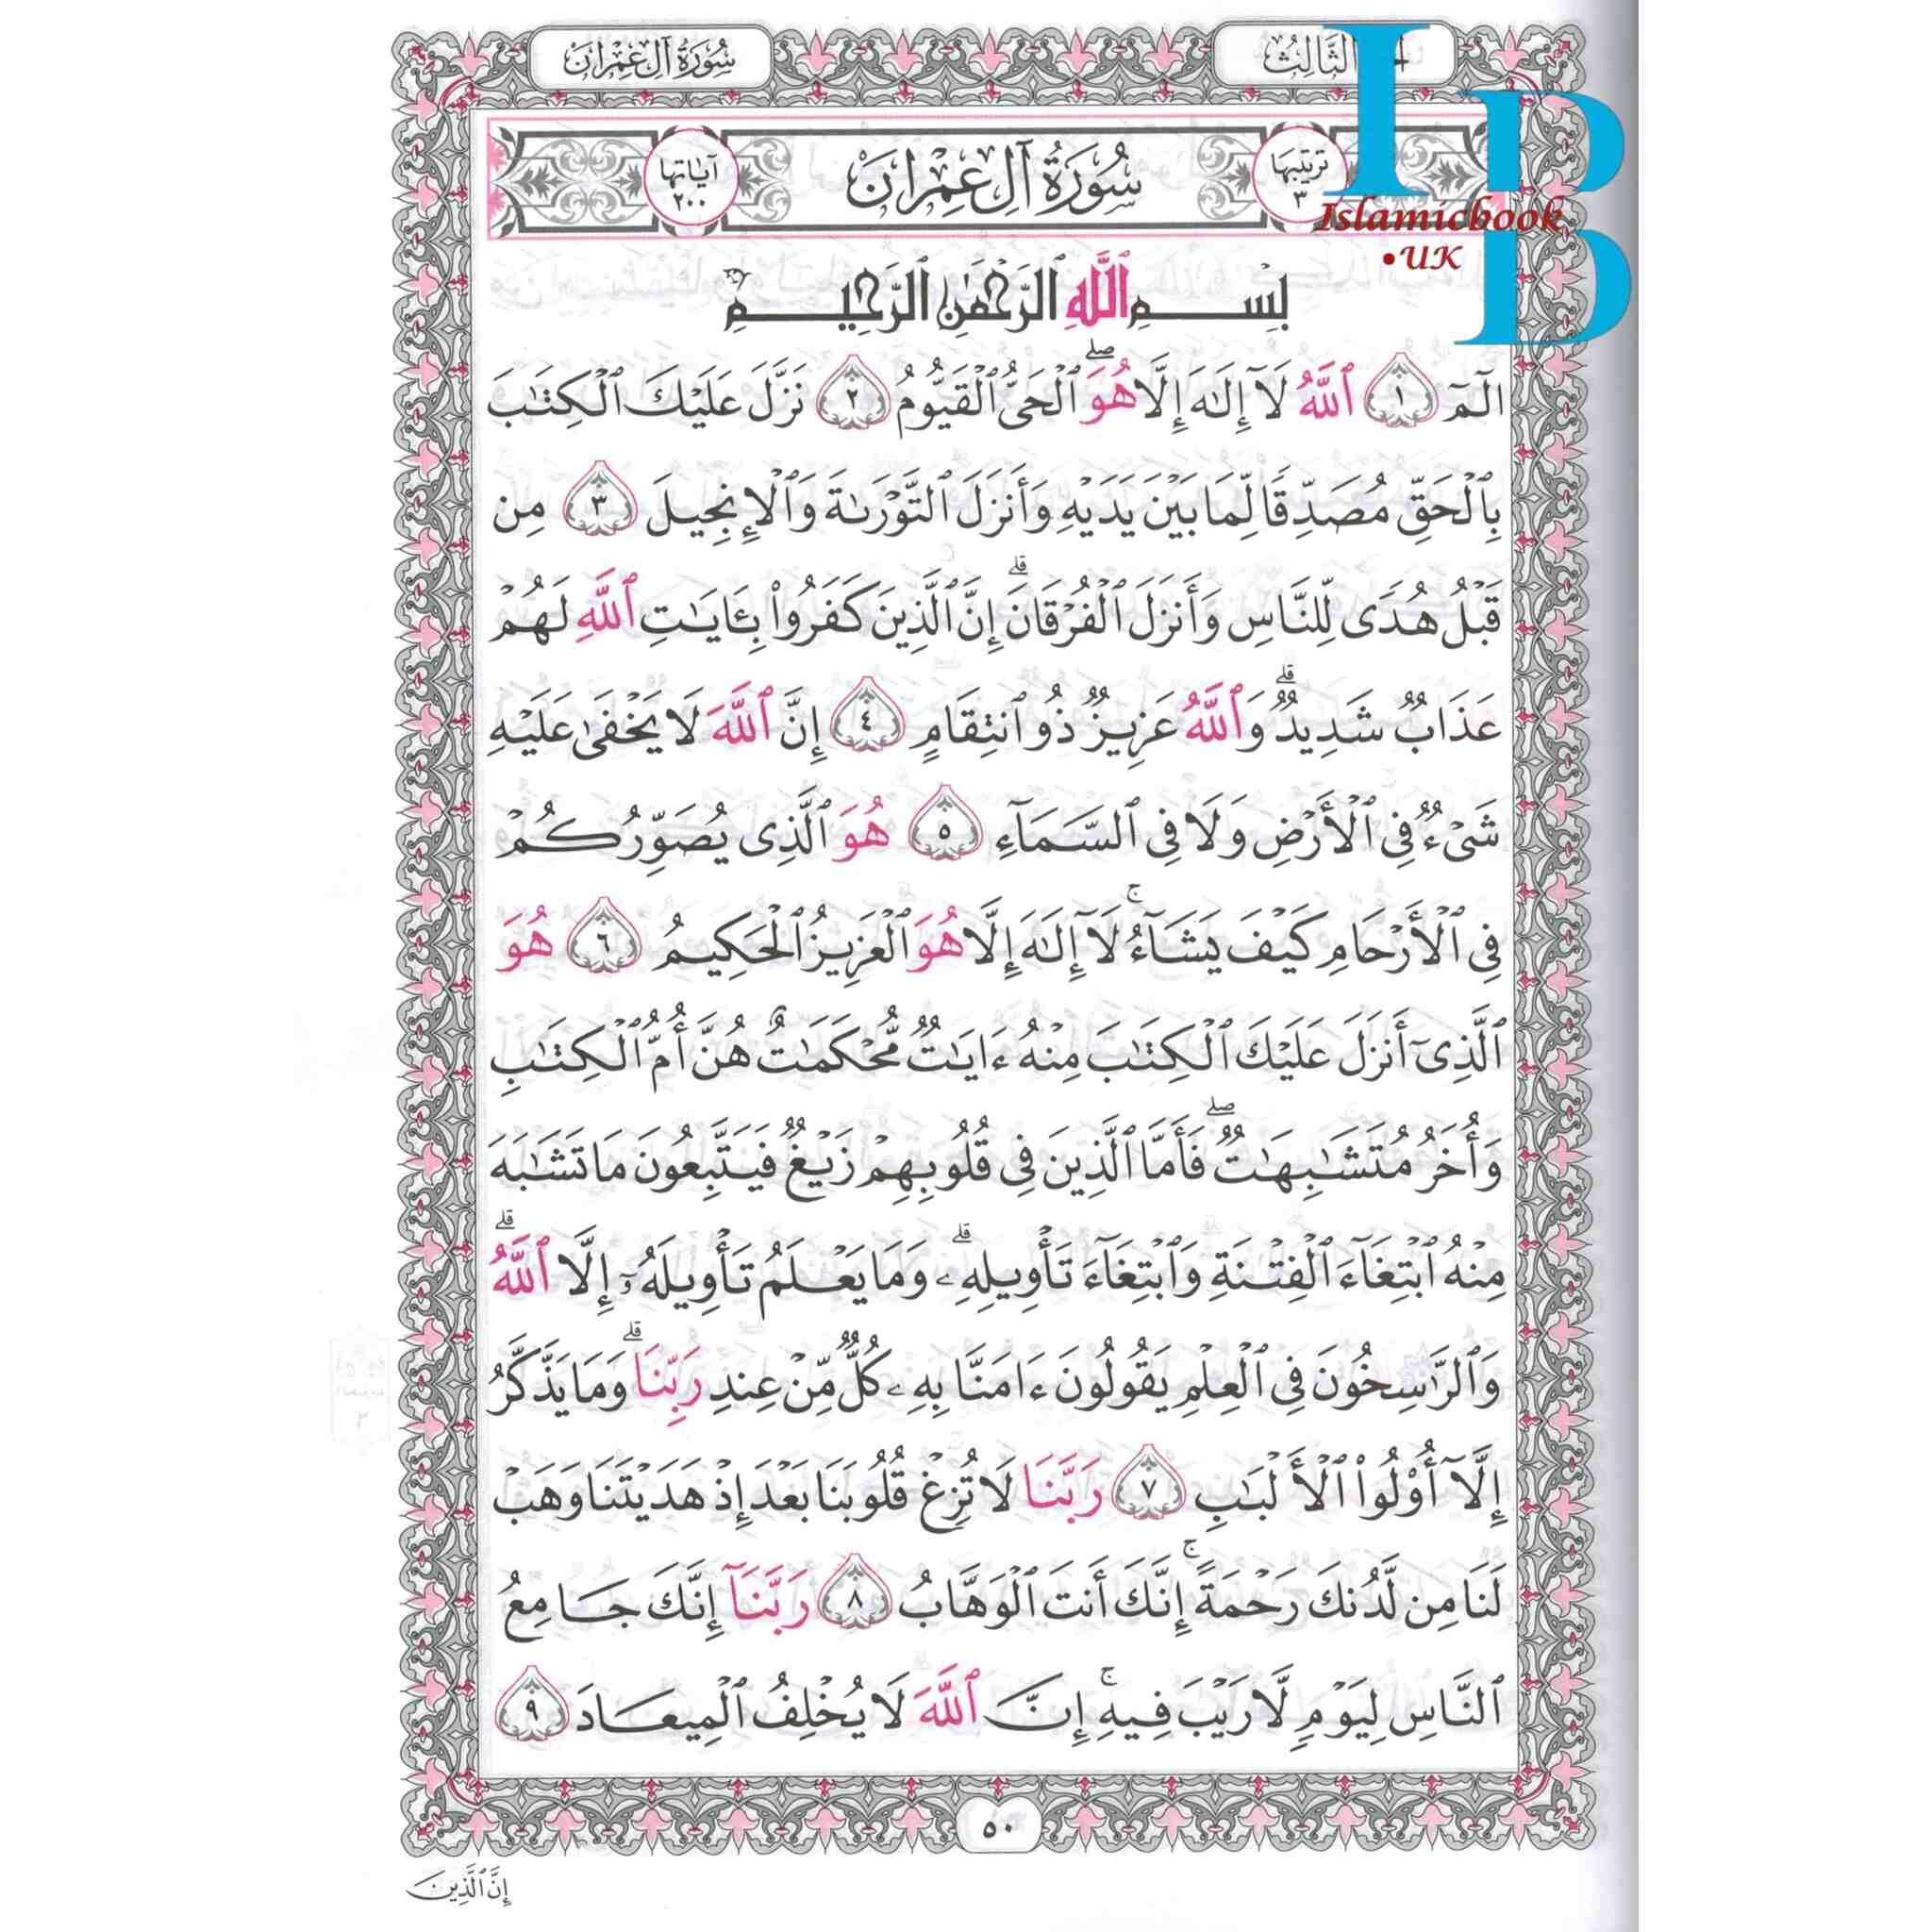 الثَّالِثُ
سُورَةُ آلِ عِمْرَانَ
تَرْتِيبُهَا ٣
سُورَةُ آلِ عِمْرَانَ
آيَاتُهَا ٢٠٠
Islamicbook
.UK
بِسْمِ ٱللَّهِ ٱلرَّحْمَٰنِ ٱلرَّحِيمِ
الٓمٓ ١ ٱللَّهُ لَآ إِلَٰهَ إِلَّا هُوَ ۖ ٱلْحَىُّ ٱلْقَيُّومُ ٢ نَزَّلَ عَلَيْكَ ٱلْكِتَٰبَ
بِٱلْحَقِّ مُصَدِّقًا لِّمَا بَيْنَ يَدَيْهِ وَأَنزَلَ ٱلتَّوْرَىٰةَ وَٱلْإِنجِيلَ ٣ مِن
قَبْلُ هُدًى لِّلنَّاسِ وَأَنزَلَ ٱلْفُرْقَانَ ۗ إِنَّ ٱلَّذِينَ كَفَرُوا۟ بِـَٔايَٰتِ ٱللَّهِ لَهُمْ
عَذَابٌ شَدِيدٌ ۗ وَٱللَّهُ عَزِيزٌ ذُو ٱنتِقَامٍ ٤ إِنَّ ٱللَّهَ لَا يَخْفَىٰ عَلَيْهِ
شَىْءٌ فِى ٱلْأَرْضِ وَلَا فِى ٱلسَّمَآءِ ٥ هُوَ ٱلَّذِى يُصَوِّرُكُمْ
فِى ٱلْأَرْحَامِ كَيْفَ يَشَآءُ ۚ لَآ إِلَٰهَ إِلَّا هُوَ ٱلْعَزِيزُ ٱلْحَكِيمُ ٦ هُوَ
ٱلَّذِىٓ أَنزَلَ عَلَيْكَ ٱلْكِتَٰبَ مِنْهُ ءَايَٰتٌ مُّحْكَمَٰتٌ هُنَّ أُمُّ ٱلْكِتَٰبِ
وَأُخَرُ مُتَشَٰبِهَٰتٌ ۖ فَأَمَّا ٱلَّذِينَ فِى قُلُوبِهِمْ زَيْغٌ فَيَتَّبِعُونَ مَا تَشَٰبَهَ
مِنْهُ ٱبْتِغَآءَ ٱلْفِتْنَةِ وَٱبْتِغَآءَ تَأْوِيلِهِۦ ۗ وَمَا يَعْلَمُ تَأْوِيلَهُۥٓ إِلَّا ٱللَّهُ ۗ
وَٱلرَّٰسِخُونَ فِى ٱلْعِلْمِ يَقُولُونَ ءَامَنَّا بِهِۦ كُلٌّ مِّنْ عِندِ رَبِّنَا ۗ وَمَا يَذَّكَّرُ
إِلَّآ أُو۟لُوا۟ ٱلْأَلْبَٰبِ ٧ رَبَّنَا لَا تُزِغْ قُلُوبَنَا بَعْدَ إِذْ هَدَيْتَنَا وَهَبْ
لَنَا مِن لَّدُنكَ رَحْمَةً ۚ إِنَّكَ أَنتَ ٱلْوَهَّابُ ٨ رَبَّنَآ إِنَّكَ جَامِعُ
ٱلنَّاسِ لِيَوْمٍ لَّا رَيْبَ فِيهِ ۚ إِنَّ ٱللَّهَ لَا يُخْلِفُ ٱلْمِيعَادَ ٩
٥٠
إِنَّ ٱلَّذِينَ